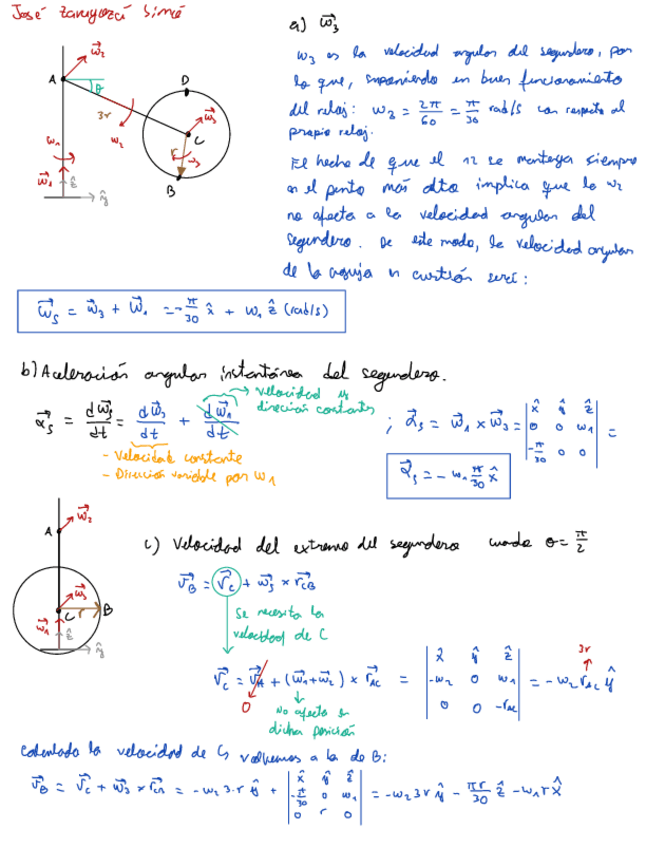 José Zaragozá Simó
a) ω⃗₃
ω₃ es la velocidad angular del segundero, por
lo que, suponiendo un buen funcionamiento
del reloj: ω₃ = 2π/60 = π/30 rad/s con respecto al
propio reloj.
El hecho de que el 12 se mantenga siempre
en el punto más alto implica que la ω₂
no afecta a la velocidad angular del
segundero. De este modo, la velocidad angular
de la aguja en cuestión será:
A ω⃗₂ θ 3r ω₂ D ω⃗₃ C r ω₃ B ω₁ ω⃗₁ ẑ ŷ
ω⃗s = ω⃗₃ + ω⃗₁ = -π/30 x̂ + ω₁ ẑ (rad/s)
b) Aceleración angular instantánea del segundero.
velocidad y
dirección constantes
α⃗s = dω⃗s/dt = dω⃗₃/dt + dω⃗₁/dt ; α⃗s = ω⃗₁ × ω⃗₃ = | x̂ ŷ ẑ | 0 0 ω₁ | -π/30 0 0 | =
- Velocidad constante
- Dirección variable por ω₁
α⃗s = - ω₁ π/30 x̂
A ω⃗₂ ω⃗₃ C r B ω⃗₁ ẑ ŷ
c) Velocidad del extremo del segundero cuando θ = π/2
v⃗B = v⃗C + ω⃗s × r⃗CB
Se necesita la
velocidad de C
v⃗C = v⃗A + (ω⃗₁ + ω⃗₂) × r⃗AC = | x̂ ŷ ẑ | -ω₂ 0 ω₁ | 0 0 -rAC | = -ω₂ rAC ŷ
0
3r
No afecta en
dicha posición
Calculada la velocidad de C, volvemos a la de B:
v⃗B = v⃗C + ω⃗s × r⃗CB = -ω₂ 3·r ŷ + | x̂ ŷ ẑ | -π/30 0 ω₁ | 0 r 0 | = -ω₂ 3r ŷ - πr/30 ẑ - ω₁ r x̂